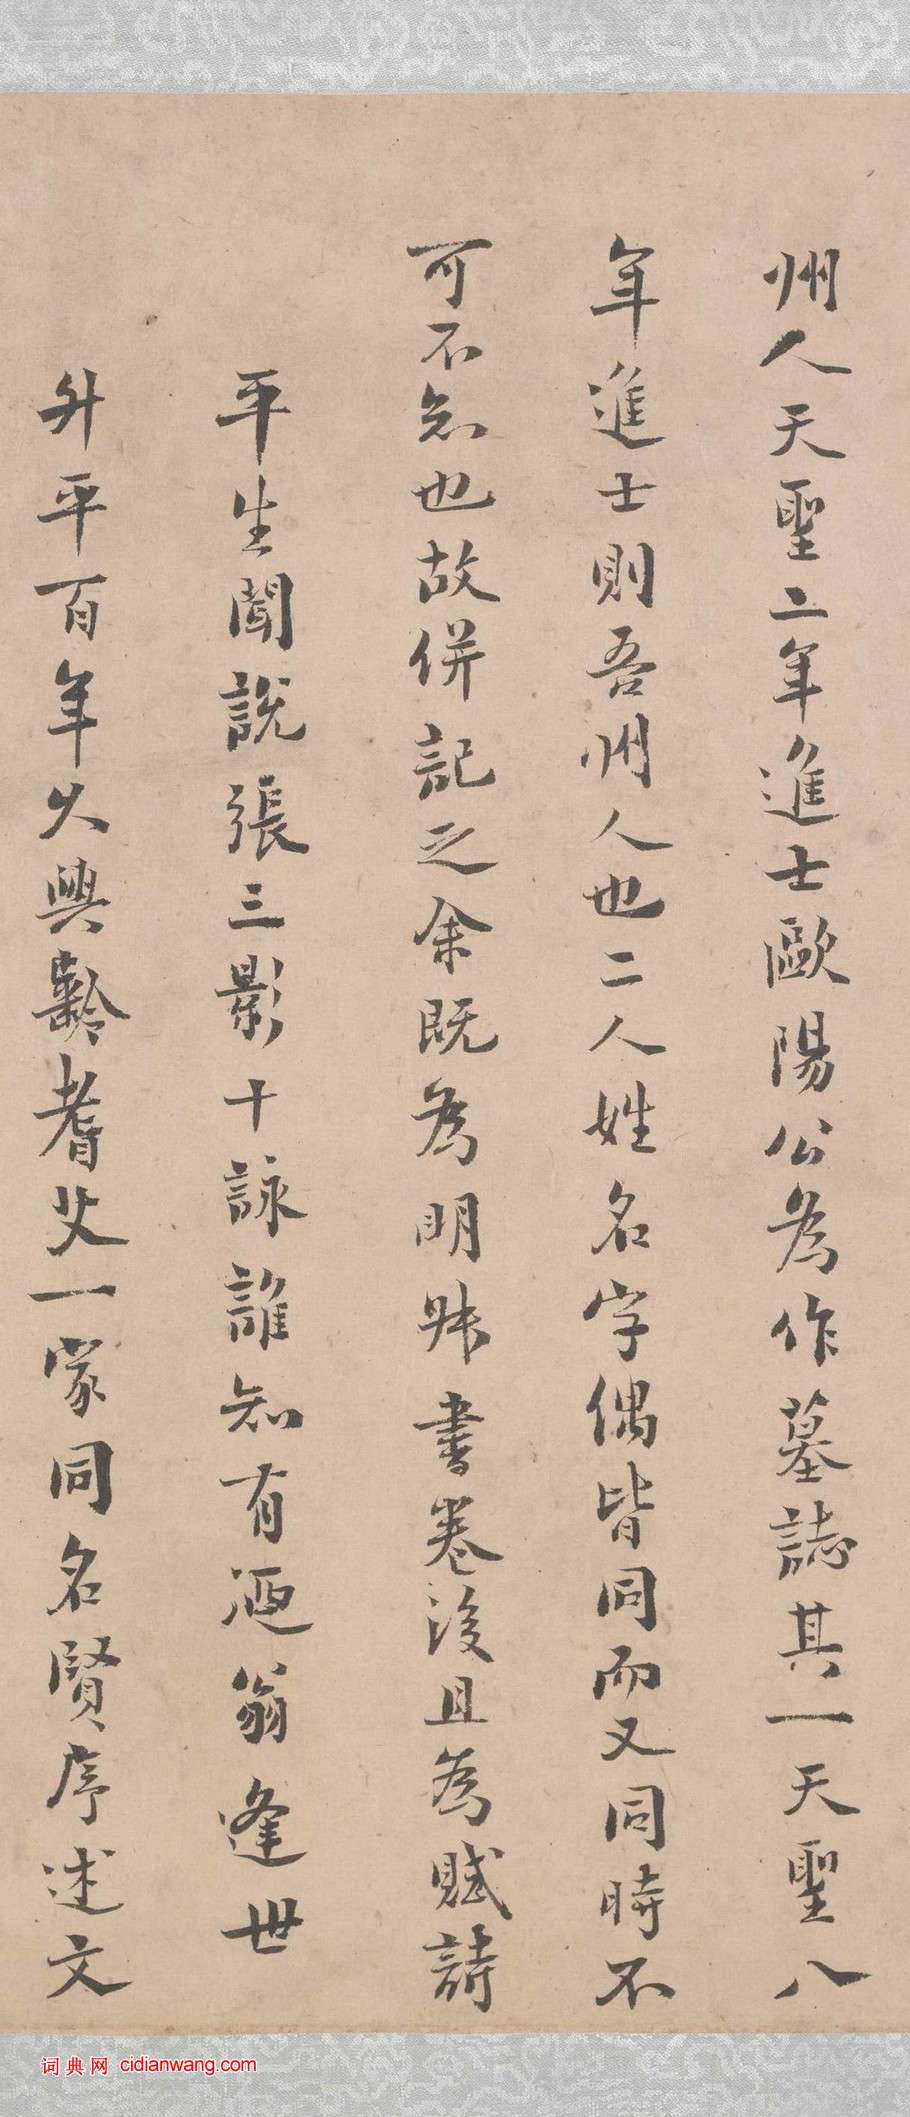 州人天聖二年進士歐陽公為作墓誌其一天聖八
年進士則吾州人也二人姓名字偶皆同而又同時不
可不知也故併記之余既為明叔書卷後且為賦詩
平生聞說張三影十詠誰知有廼翁逢世
升平百年久興齡耆艾一家同名賢序述文
词典网 cidianwang.com